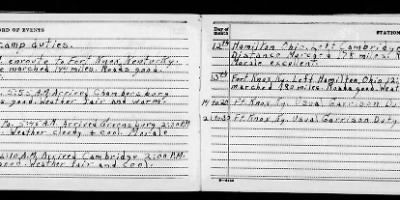 RD OF EVENTS
camp duties.
enroute to Fort Knox, Kentucky.
marched 144 miles. Roads good.
5:55 A.M. Arrived Chambersburg
good. Weather fair and warm.
Pa. 5:45 A.M. Arrived Greensburg 2:00 P.M.
Weather cloudy & cool. Morale
6:10 A.M. Arrived Cambridge 2:00 P.M.
good. Weather fair and cool.
Day of month
STATION
12th Hamilton Ohio. Left Cambridge
Distance Marched 178 miles. R
Morale excellent.
13th Fort Knox Ky. Left Hamilton, Ohio 12:
marched 180 miles. Roads good. Weat
14 to 20 Ft. Knox Ky. Usual Garrison Du
21 to 30 Ft. Knox Ky. Usual Garrison Duty